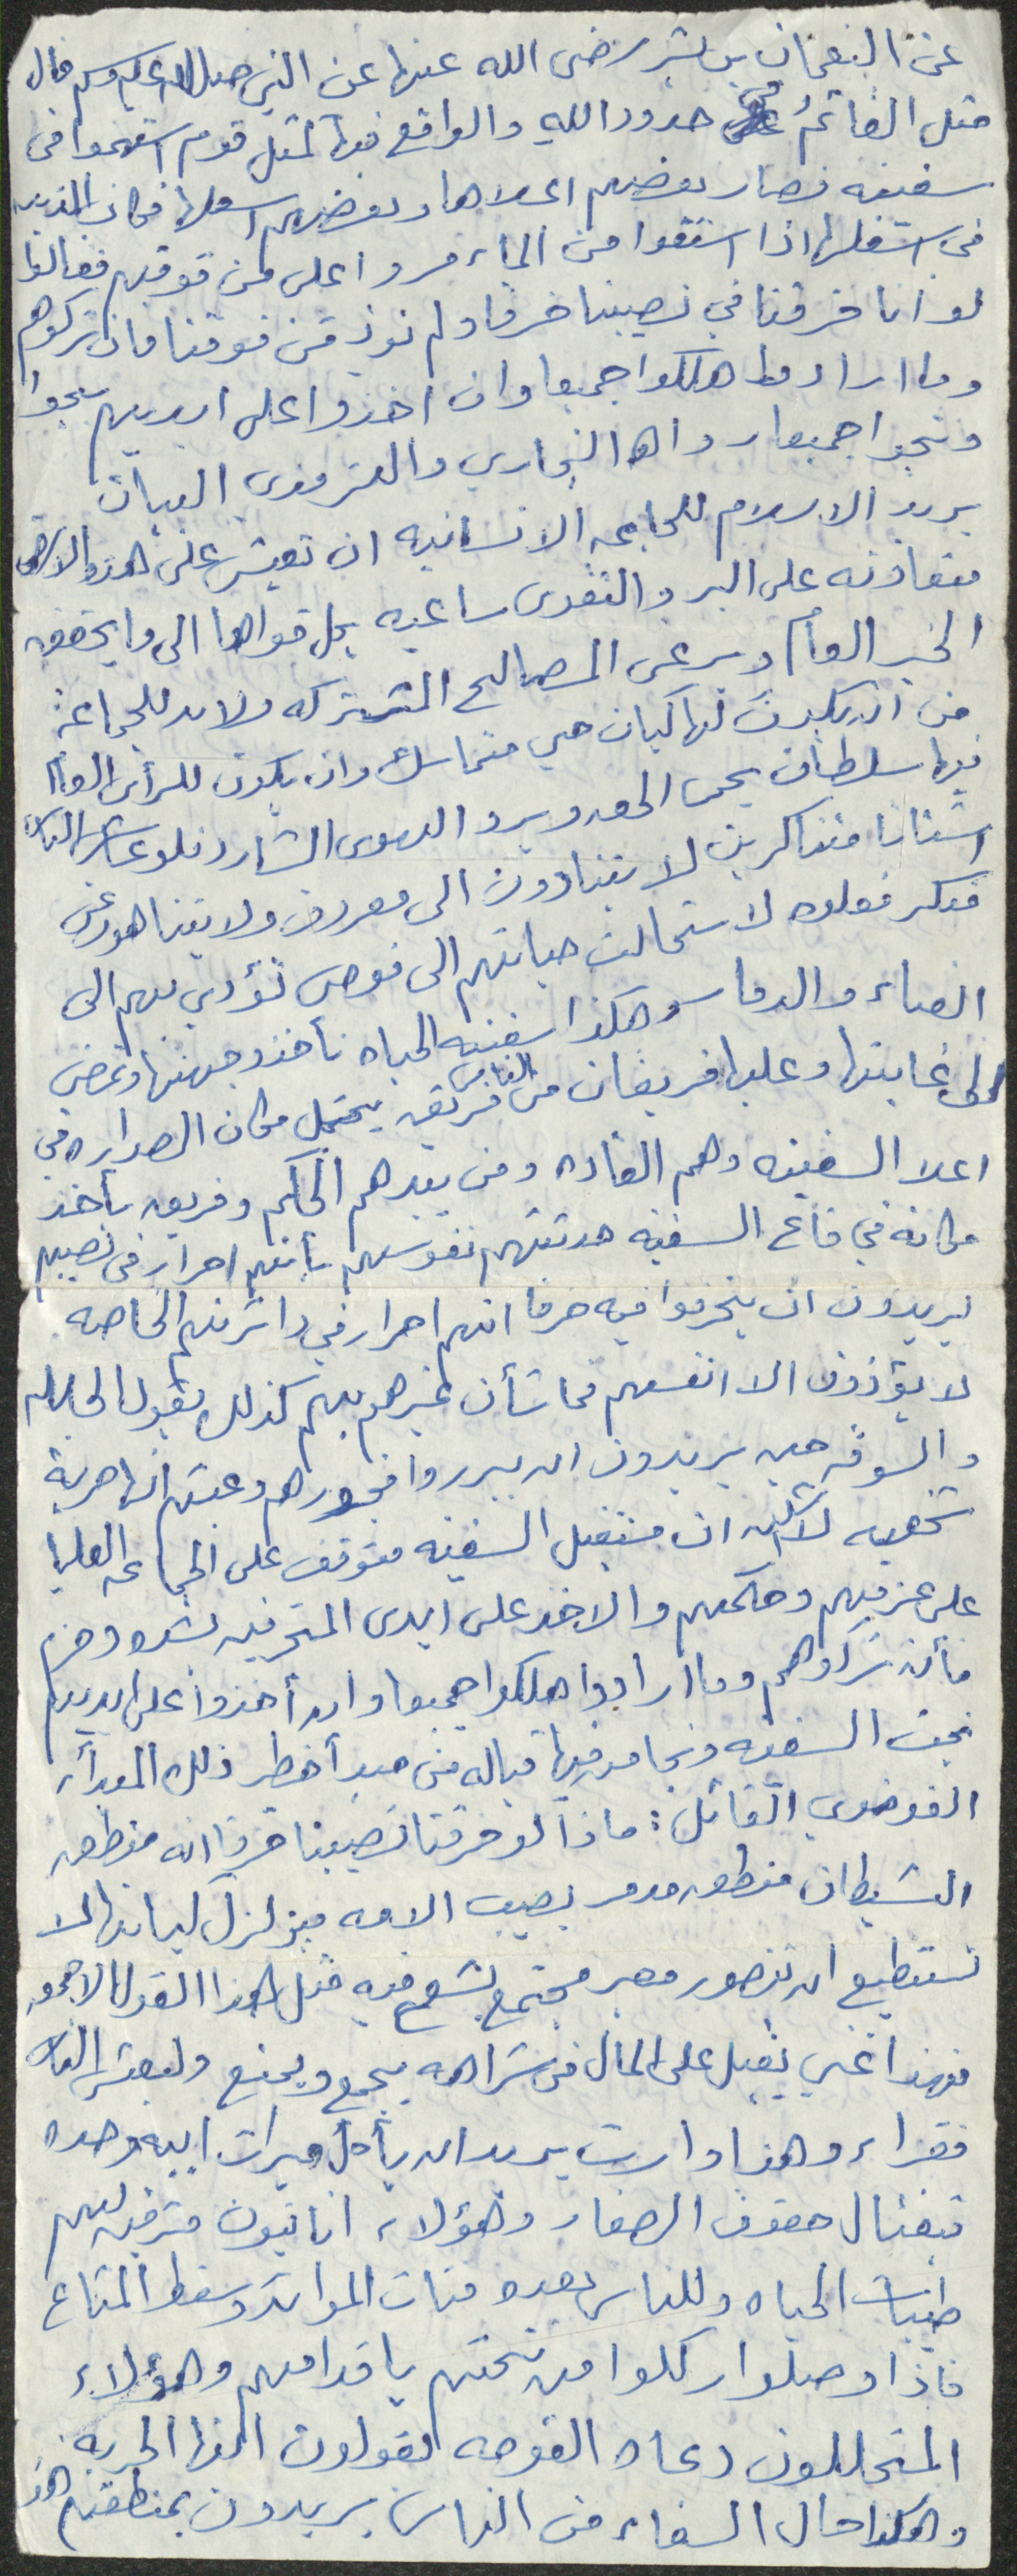 عن النعمان بن بشر رضى الله عنهما عن النبي صلى الله عليه وسلم قال
مثل القائم في حدود الله والواقع فيها كمثل قوم استهموا فى
سفينه فصار بعضهم اعلاها وبعضهم اسفلها فكان الذين
في اسفلها اذا استقوا من الماء مروا على من فوقهم فقالوا
لو انا خرقنا في نصيبنا خرقا ولم نوذ من فوقنا فان تركوهم
وما ارادوا هلكوا جميعا وان اخذوا على ايديهم نجوا
ونجوا جميعا رواه البخاري والترمذي البيان
يريد الاسلام للجماعه الانسانيه ان تعيش على هذه الارض
متعاونه على البر والتقوى ساعيه بكل قواها الى ما يحقق
الخير العام ويرعى المصالح المشتركه ولابد للجماعة
من ان يكون لها كيان حي متماسك وان يكون للرأى العام
فيها سلطان يحمى الحق ويرد الهوى الشارد فلو عاش الناس
اشتاتا متناكرين لا يتنادون الى معروف ولا يتناهون عن
منكر فعلوه لاستحالت حياتهم الى فوضى تؤدي بهم الى
الفناء والدمار وهكذا سفينه الحياه تأخذ وجهتها وتمضى
الى غايتها وعليها فريقان من الناس فريق يحتل مكان الصداره فى
اعلا السفينه وهم القاده ومن بيدهم الحكم وفريق يأخذ
مكانه في قاع السفينه حدثتهم نفوسهم بأنهم احرار فى نصيبهم
يريدون ان يخرقوا فيه خرقا انهم احرار في دائرتهم الخاصه
لا يؤذون الا انفسهم فما شأن غيرهم بهم كذلك يقول الجهله
والسوقه حين يريدون ان يبرروا فجورهم وعبثهم انها حرية
شخصيه لاكن ان مستقبل السفينه متوقف على الجماعه العليا
على عزمهم وحكمهم والاخذ على ايدى المنحرفين بشده وحزم
فأن تركوهم وما ارادوا هلكوا جميعا وان أخذوا على ايديهم
نجت السفينه ونجا من فيها فياله من مبدأ خطر ذلك المبدأ
الفوضوي القائل: ماذا لو خرقنا نصيبنا خرقا انه منطق
الشيطان منطق مدمر يصيب الامه فيزلزل كيانها الا
تستطيع ان تتصور مصير مجتمع يشيع فيه مثل هذا القول الاحمق
فهذا غني يقبل على المال فى شراهه يجمع ويمنع وليعش الناس
فقراء وهذا وارث يريد ان يأكل ميراث ابيه وحده
فيغتال حقوق الصغار وهؤلاء انانيون مترفين لهم
طيبات الحياه وللناس بعد فتات الموائد وسقط المتاع
فاذا وصلوا ركلوا من تحتهم باقدامهم وهؤلاء
المتحللون دعاه الفوضه يقولون انها الحريه
وهكذا حال السفهاء من الناس يريدون بمنطقهم هذا